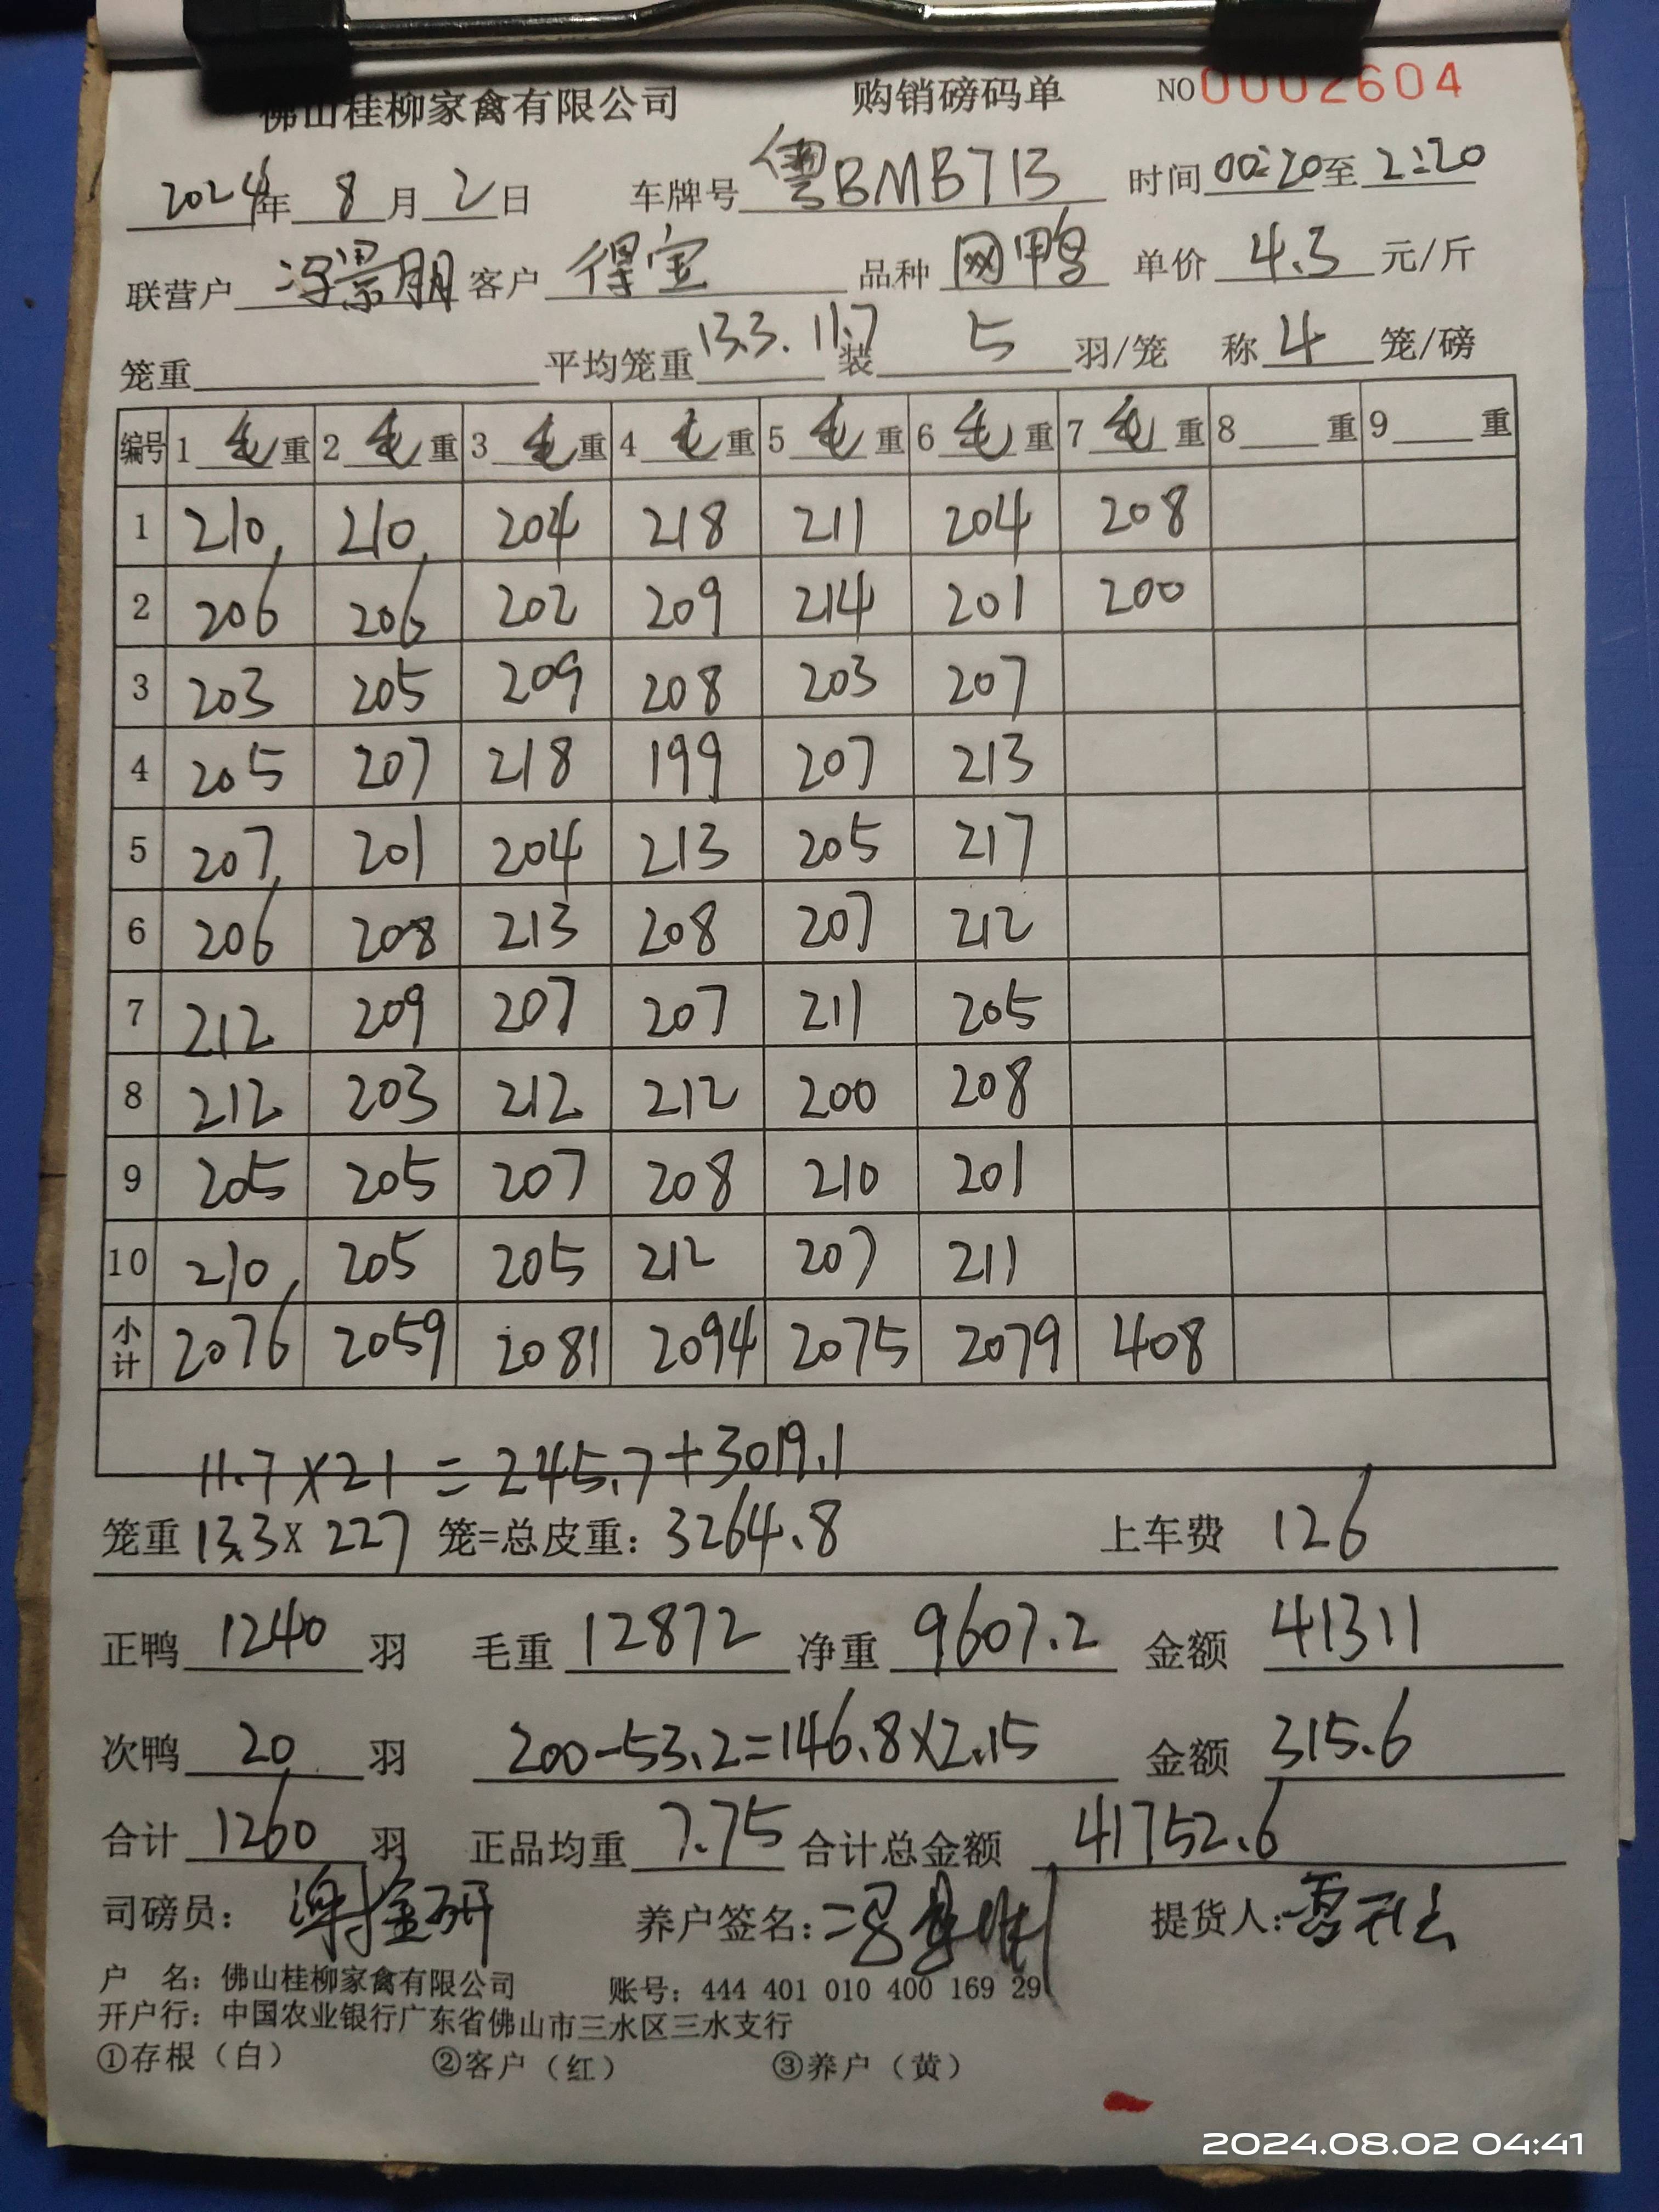 佛山桂柳家禽有限公司 购销磅码单 NO 0002604
2024年 8 月 2 日 车牌号 粤BMB713 时间 00:20 至 2:20
联营户 冯景朋 客户 得宝 品种 网鸭 单价 4.3 元/斤
笼重 平均笼重 13.3. 11.7 装 5 羽/笼 称 4 笼/磅
编号 1 毛 重 2 毛 重 3 毛 重 4 毛 重 5 毛 重 6 毛 重 7 毛 重 8 重 9 重
1 210 210 204 218 211 204 208
2 206 206 202 209 214 201 200
3 203 205 209 208 203 207
4 205 207 218 199 207 213
5 207 201 204 213 205 217
6 206 208 213 208 207 212
7 212 209 207 207 211 205
8 212 203 212 212 200 208
9 205 205 207 208 210 201
10 210 205 205 212 207 211
小计 2076 2059 2081 2094 2075 2079 408
11.7×21=245.7+3019.1
笼重 13.3× 227 笼=总皮重: 3264.8 上车费 126
正鸭 1240 羽 毛重 12872 净重 9607.2 金额 41311
次鸭 20 羽 200-53.2=146.8×2.15 金额 315.6
合计 1260 羽 正品均重 7.75 合计总金额 41752.6
司磅员: 养户签名: 提货人:
户 名: 佛山桂柳家禽有限公司 账号: 444 401 010 400 169 29
开户行: 中国农业银行广东省佛山市三水区三水支行
①存根（白） ②客户（红） ③养户（黄）
2024.08.02 04:41